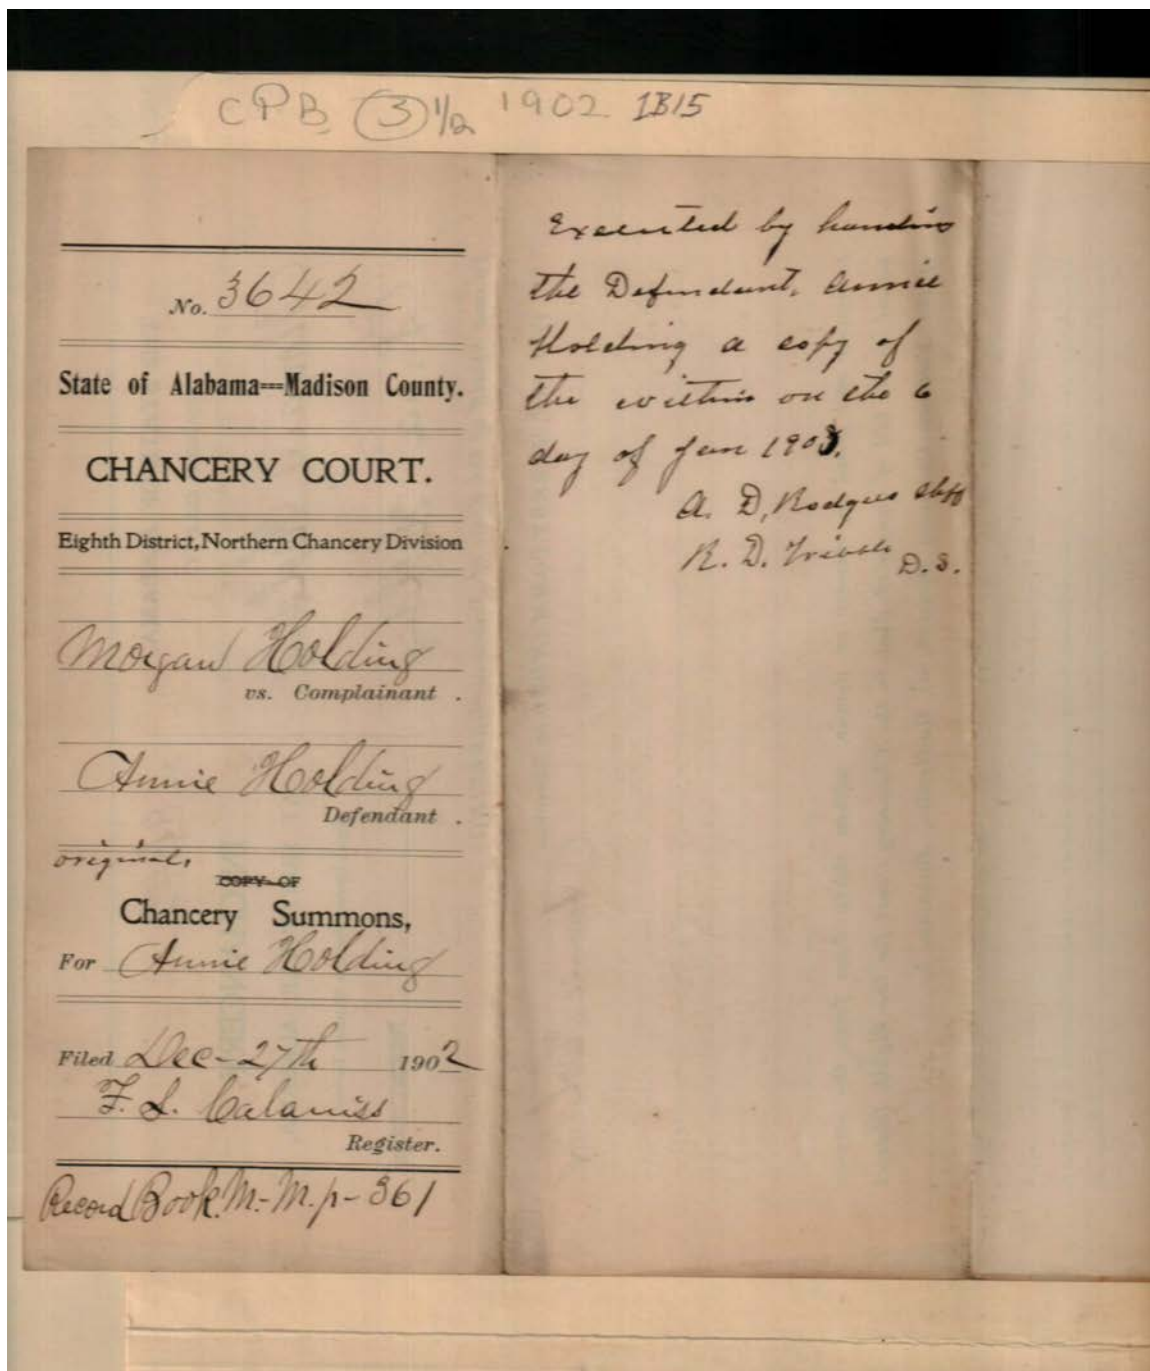 CPB (3) 1/2 1902 1B15
No. 3642
State of Alabama==Madison County.
CHANCERY COURT.
Eighth District, Northern Chancery Division
Morgan Holding
vs. Complainant .
Annie Holding
Defendant .
original,
COPY OF
Chancery Summons,
For Annie Holding
Filed Dec - 27th 1902
F. L.
Register.
Record Book. M.-M. p- 361
Executed by handing
the Defendant, Annie
Holding a copy of
the within on the 6
day of Jan 1903.
A. D, Rodgers Shff
R. D. D.S.